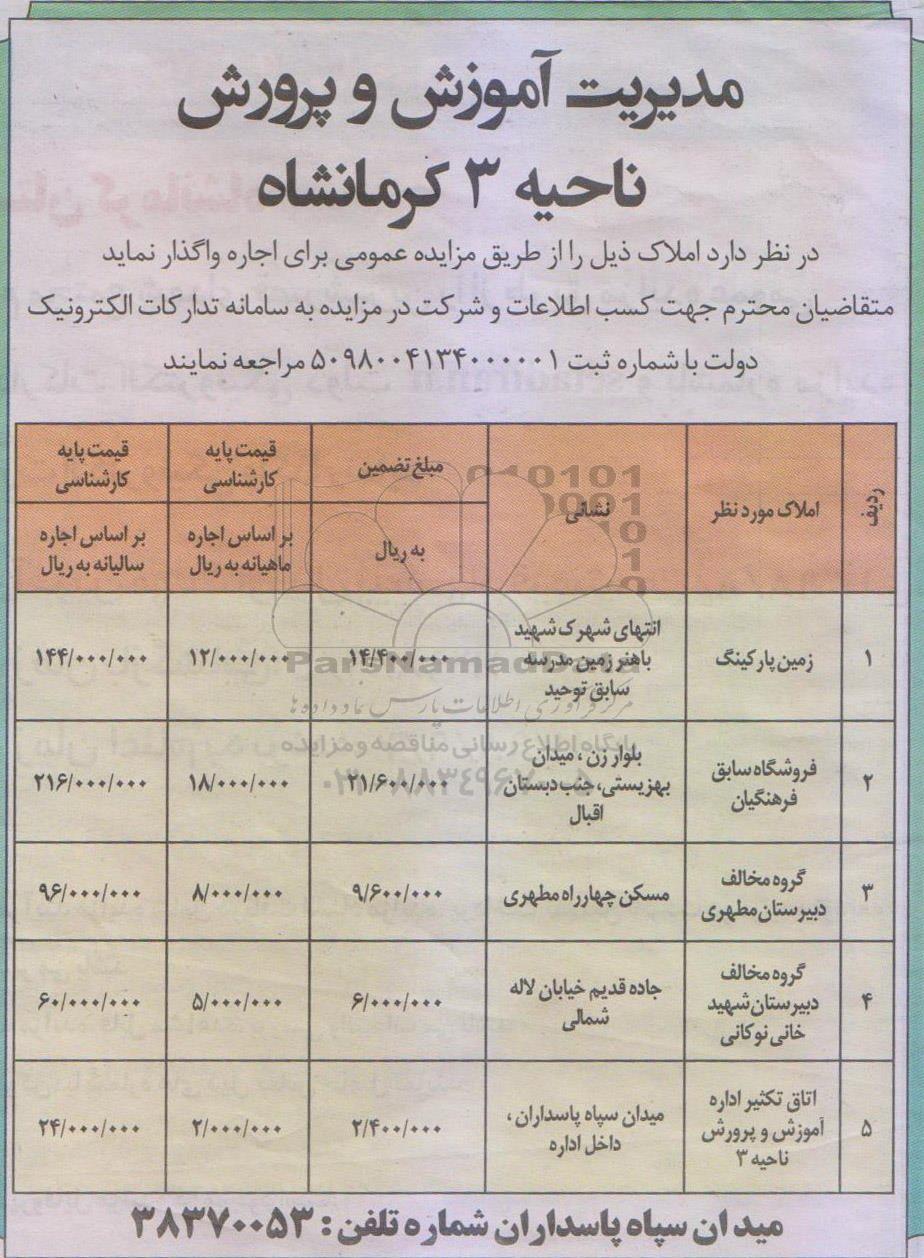 مدیریت آموزش و پرورش
ناحیه ۳ کرمانشاه
در نظر دارد املاک ذیل را از طریق مزایده عمومی برای اجاره واگذار نماید
متقاضیان محترم جهت کسب اطلاعات و شرکت در مزایده به سامانه تدارکات الکترونیک
دولت با شماره ثبت ۵۰۹۸۰۰۴۱۳۴۰۰۰۰۰۱ مراجعه نمایند
ردیف
املاک مورد نظر
نشانی
مبلغ تضمین
به ریال
قیمت پایه
کارشناسی
بر اساس اجاره
ماهیانه به ریال
قیمت پایه
کارشناسی
بر اساس اجاره
سالیانه به ریال
۱
زمین پارکینگ
انتهای شهرک شهید
باهنر زمین مدرسه
سابق توحید
۱۴/۴۰۰/۰۰۰
۱۲/۰۰۰/۰۰۰
۱۴۴/۰۰۰/۰۰۰
۲
فروشگاه سابق
فرهنگیان
بلوار زن ، میدان
بهزیستی، جنب دبستان
اقبال
۲۱/۶۰۰/۰۰۰
۱۸/۰۰۰/۰۰۰
۲۱۶/۰۰۰/۰۰۰
۳
گروه مخالف
دبیرستان مطهری
مسکن چهارراه مطهری
۹/۶۰۰/۰۰۰
۸/۰۰۰/۰۰۰
۹۶/۰۰۰/۰۰۰
۴
گروه مخالف
دبیرستان شهید
خانی نوکانی
جاده قدیم خیابان لاله
شمالی
۶/۰۰۰/۰۰۰
۵/۰۰۰/۰۰۰
۶۰/۰۰۰/۰۰۰
۵
اتاق تکثیر اداره
آموزش و پرورش
ناحیه ۳
میدان سپاه پاسداران ،
داخل اداره
۲/۴۰۰/۰۰۰
۲/۰۰۰/۰۰۰
۲۴/۰۰۰/۰۰۰
میدان سپاه پاسداران شماره تلفن : ۳۸۳۷۰۰۵۳
ParsNamadData
مرکز فرآوری اطلاعات پارس نماد داده ها
پایگاه اطلاع رسانی مناقصه و مزایده